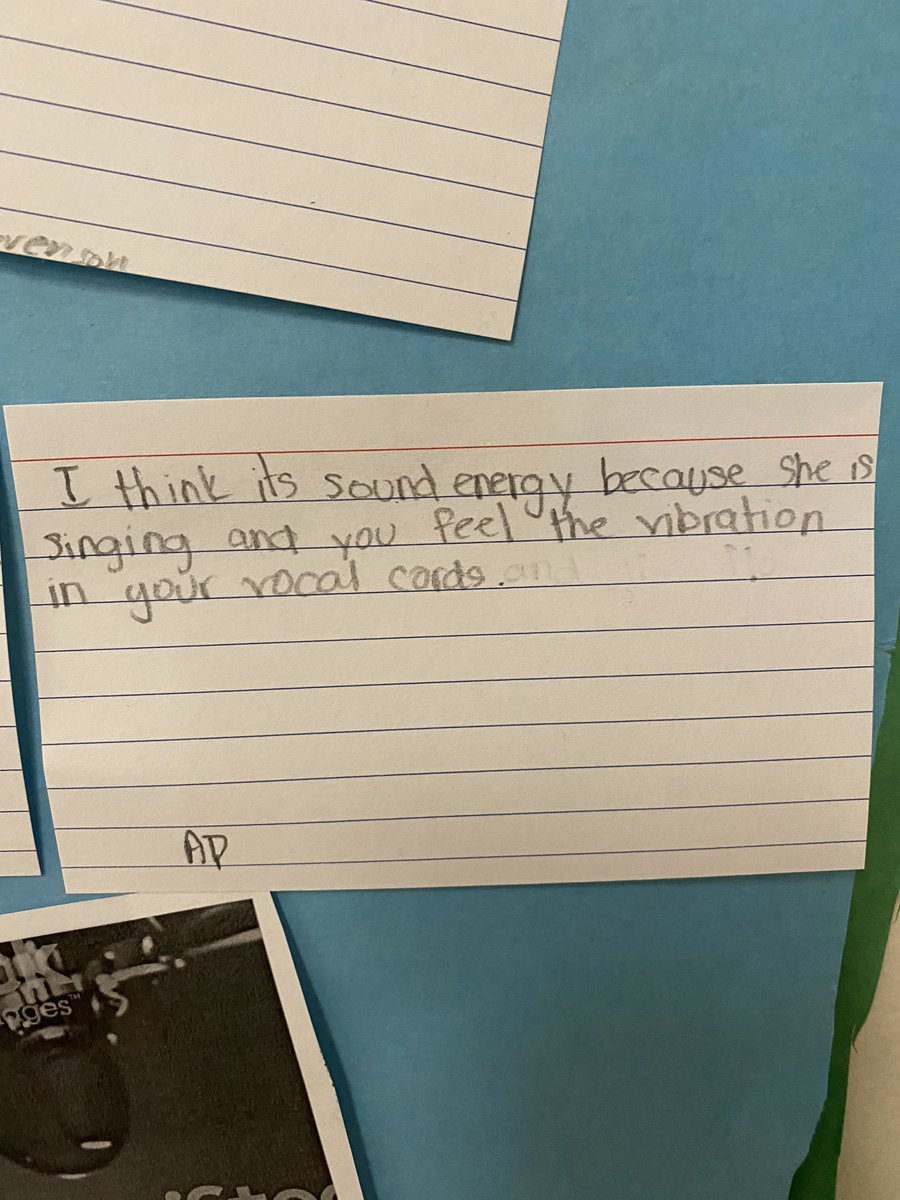 venson
I think its sound energy because she is
singing and you feel the vibration
in your vocal cords. and
AP
ok
ages™
iStoc